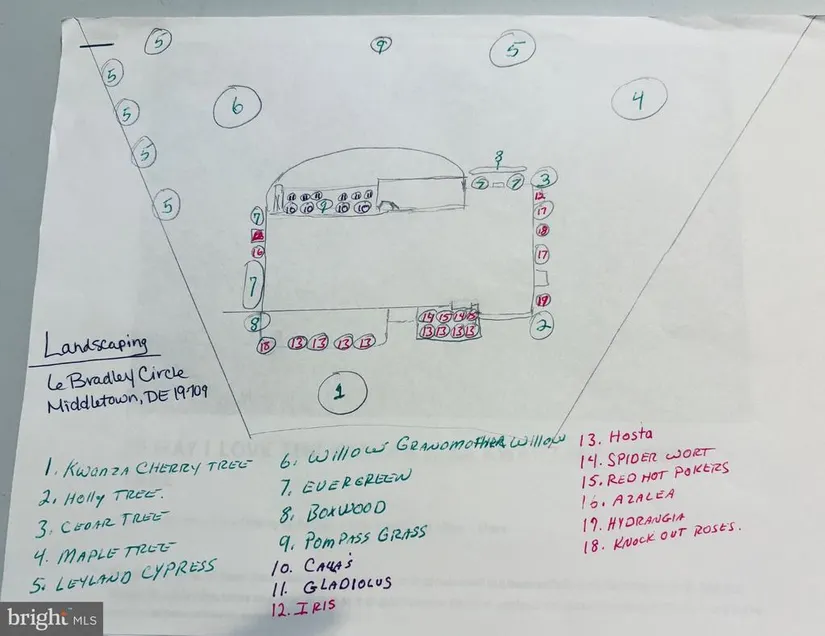 5
9
5
5
6
4
5
5
8
3
9
7
12
11 11 11 11 11 11
5
7
10 10 9 10 10
17
18
16
17
7
18
8
14 15 14 15
2
18
13 13 13 13
13 13 13 13
Landscaping
6 Bradley Circle
Middletown, DE 19709
1
1. KWANZA CHERRY TREE
2. Holly TREE.
3. CEDAR TREE
4. MAPLE TREE
5. LEYLAND CYPRESS
6. WILLOW GRANDMOTHER WILLOW
7. EVERGREEN
8. BOXWOOD
9. POMPASS GRASS
10.
11. GLADIOLUS
12. IRIS
13. Hosta
14. SPIDER WORT
15. RED HOT POKERS
16. AZALEA
17. HYDRANGIA
18. KNOCK OUT ROSES.
bright MLS